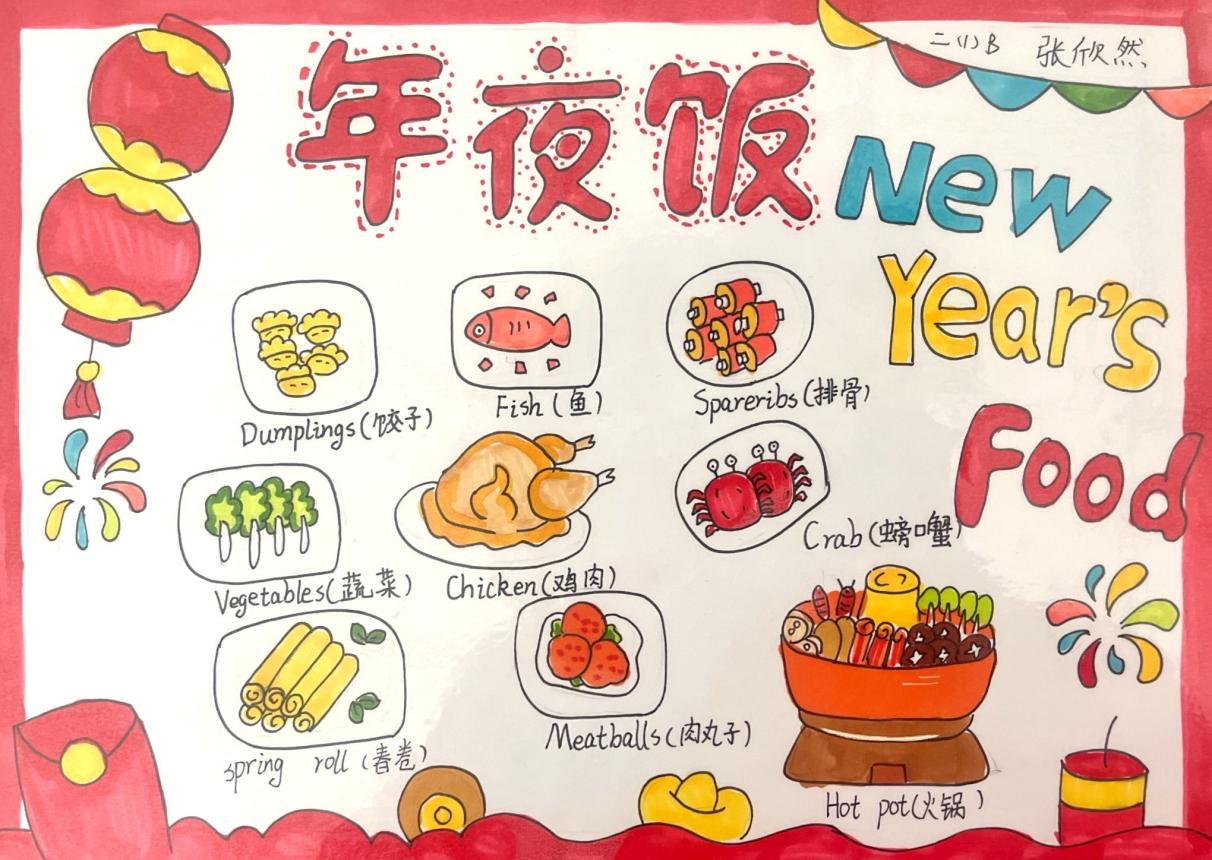 二(1)B 张欣然
年夜饭
New
Year's
Food
Dumplings(饺子)
Fish(鱼)
Spareribs(排骨)
Vegetables(蔬菜)
Chicken(鸡肉)
Crab(螃蟹)
spring roll(春卷)
Meatballs(肉丸子)
Hot pot(火锅)